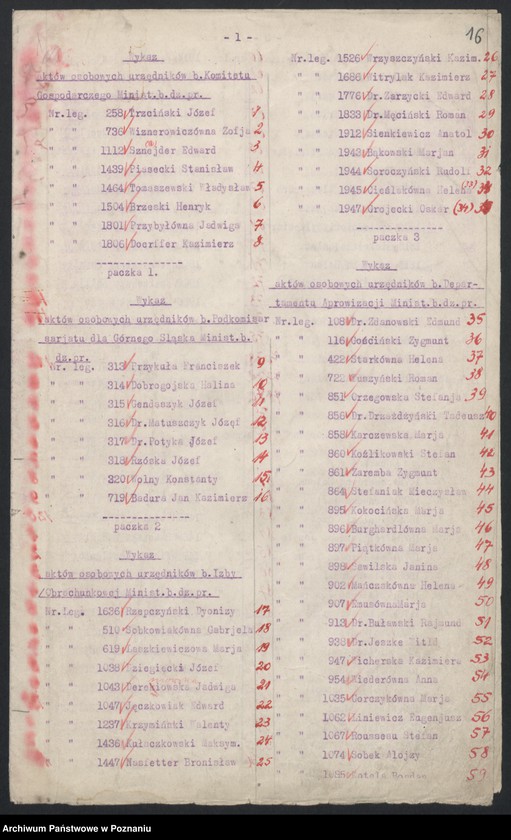 16
- 1 -
Wykaz
aktów osobowych urzędników b.Komitetu
Gospodarczego Minist.b.dz.pr.
Nr.leg. 258 Trzciński Józef 1
" " 736 Wiznerowiczówna Zofja 2
" " 1112 Sznajder Edward 3
" " 1439 Piasecki Stanisław 4
" " 1464 Tomaszewski Władysław 5
" " 1504 Brzeski Henryk 6
" " 1801 Przybyłówna Jadwiga 7
" " 1806 Kazimierz 8
paczka 1.
Wykaz
aktów osobowych urzędników b.Podkomisar
marjatu dla Górnego Śląska Minist.b.
dz.pr.
Nr. leg. 313 Przykuła Franciszek 9
" " 314 Dobrogojska Halina 10
" " 315 Gendaszyk Józef 11
" " 316 Dr.Matuszczyk Józef 12
" " 317 Dr.Potyka Józef 13
" " 318 Rzóska Józef 14
" " 320 Wolny Konstanty 15
" " 719 Badura Jan Kazimierz 16
paczka 2
Wykaz
aktów osobowych urzędników b.Izby
/Obrachunkowej Minist.b.dz.pr.
Nr.leg. 1636 Rzepczyński Dyonizy 17
" " 510 Sobkowiakówna Gabrjela 18
" " 619 Laszkiewiczowa Marja 19
" " 1038 Dzięgiecki Józef 20
" " 1043 Jadwiga 21
" " 1047 Jęczkowiak Edward 22
" " 1237 Krzymiński Walenty 23
" " 1436 Kułaczkowski Maksym. 24
" " 1447 Hanfetter Bronisław 25
Nr.leg. 1526 Wrzyszczyński Kazim. 26
" " 1686 Witrylak Kazimiera 27
" " 1776 Dr.Zarzycki Edward 28
" " 1833 Dr.Męciński Roman 29
" " 1912 Sienkiewicz Anatol 30
" " 1943 Bąkowski Marjan 31
" " 1944 Soroczyński Rudolf 32
" " 1945 Cieślakówna Helena (33)
" " 1947 Grojecki Oskar (34)
paczka 3
Wykaz
aktów osobowych urzędników b.Depar-
tamentu Aprowizacji Minist.b.dz.pr.
Nr.leg. 108 Dr.Zdanowski Edmund 35
" " 116 Gościński Zygmunt 36
" " 422 Starkówna Helena 37
" " 722 Muszyński Roman 38
" " 851 Grzegowska Stefanja 39
" " 856 Dr.Drzażdżyński Tadeusz 40
" " 858 Karczewska Marja 41
" " 860 Koźlikowski Stefan 42
" " 861 Zaremba Zygmunt 43
" " 864 Stefaniak Mieczysław 44
" " 895 Kokocińska Marja 45
" " 896 Burghardtówna Marja 46
" " 897 Piątkówna Marja 47
" " 898 Janina 48
" " 902 Mańczakówna Helena 49
" " 907 Marja 50
" " 913 Dr.Buławski Rajmund 51
" " 938 Dr.Jeszke Witłd 52
" " 947 Wicherska Kazimiera 53
" " 954 Niederówna Anna 54
" " 1035 Gorczykówna Marja 55
" " 1062 Liniewicz Eugenjusz 56
" " 1067 Rousseau Stefan 57
" " 1074 Sobek Alojzy 58
" " 1085 Bogdan 59
Archiwum Państwowe w Poznaniu